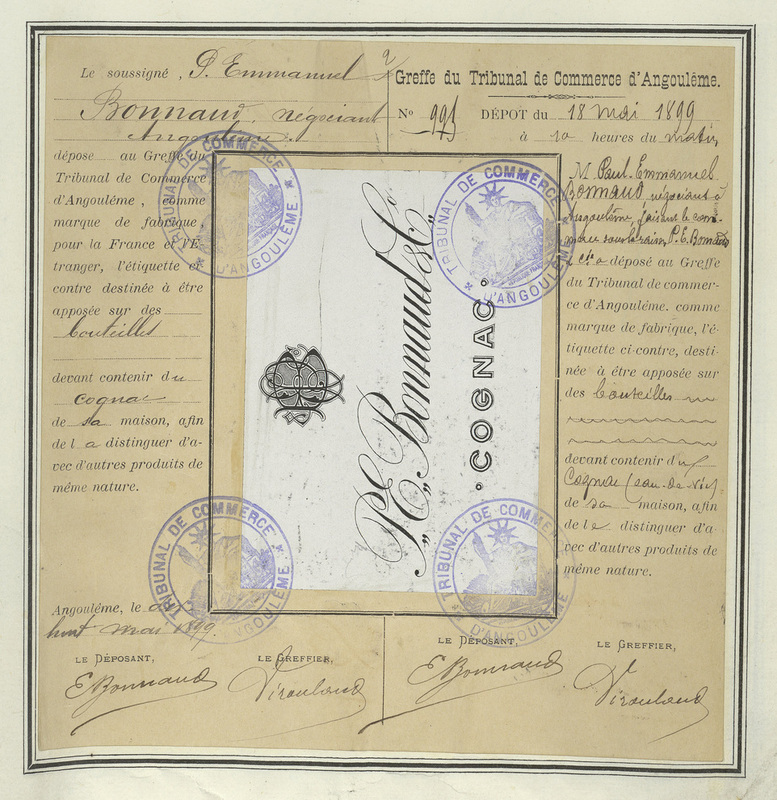 Le soussigné, P. Emmanuel
Bonnaud, négociant
Angoulême.
dépose au Greffe du
Tribunal de Commerce
d'Angoulême, comme
marque de fabrique
pour la France et l'É-
tranger, l'étiquette ci-
contre destinée à être
apposée sur des
bouteilles
devant contenir du
cognac
de sa maison, afin
de la distinguer d'a-
vec d'autres produits de
même nature.
Angoulême, le dix
huit mai 1899.
LE DÉPOSANT, LE GREFFIER,
E Bonnaud
Greffe du Tribunal de Commerce d'Angoulême.
No 995 DÉPOT du 18 mai 1899
à 10 heures du matin
M. Paul-Emmanuel
Bonnaud, négociant à
Angoulême, faisant le com-
merce sous la raison, P. E. Bonnaud
& Cie a déposé au Greffe
du Tribunal de commer-
ce d'Angoulême. comme
marque de fabrique, l'é-
tiquette ci-contre, desti-
née à être apposée sur
des bouteilles
devant contenir du
Cognac (eau-de-vie)
de sa maison, afin
de le distinguer d'a-
vec d'autres produits de
même nature.
LE DÉPOSANT, LE GREFFIER,
E Bonnaud
„P. E. Bonnaud & Co„
COGNAC
TRIBUNAL DE COMMERCE
D'ANGOULÊME
TRIBUNAL DE COMMERCE
D'ANGOULÊME
TRIBUNAL DE COMMERCE
D'ANGOULÊME
TRIBUNAL DE COMMERCE
D'ANGOULÊME